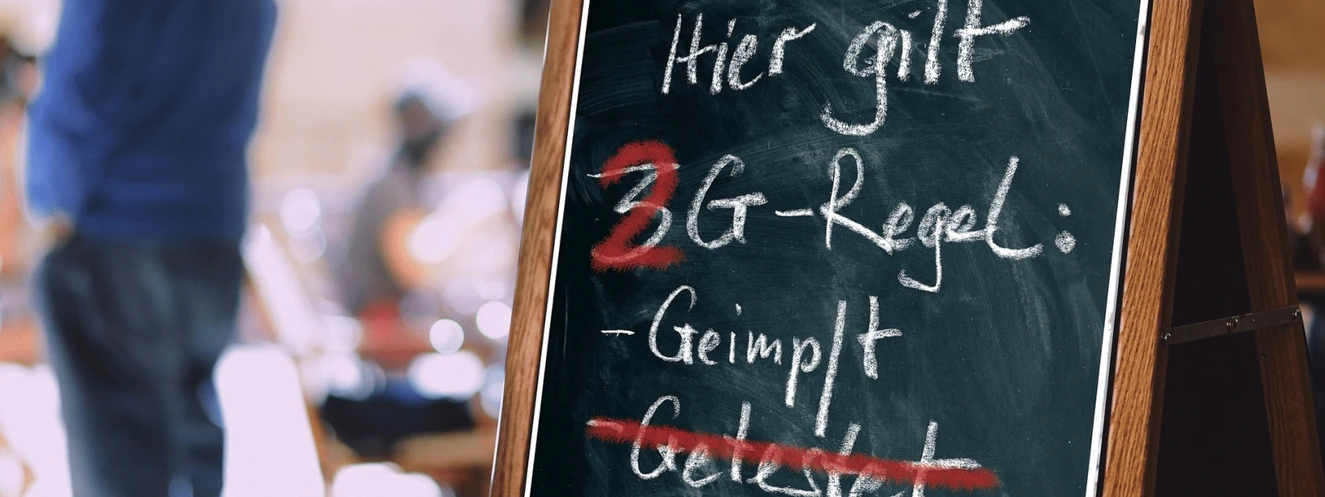 Hier gilt
2G-Regel:
- Geimpft
- Getestet